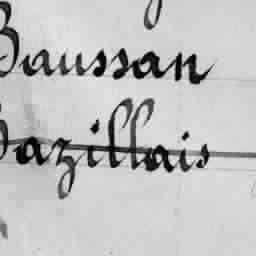 Baussan
Bazillais